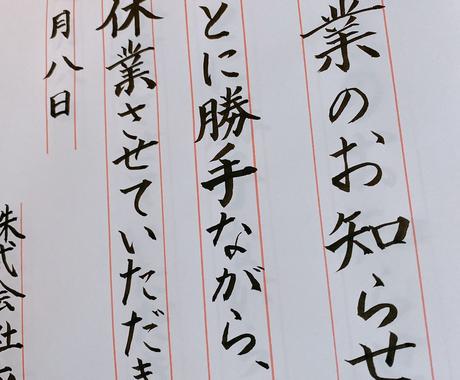 業のお知らせ
とに勝手ながら、
休業させていただき
月八日
株式会社